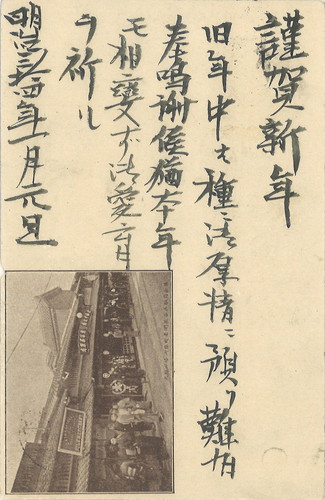 謹賀新年
旧年中ハ種々御厚情ニ預リ難有
奉鳴謝候猶本年
モ相変ず御愛顧
ヲ祈ル
明治三十四年一月元旦